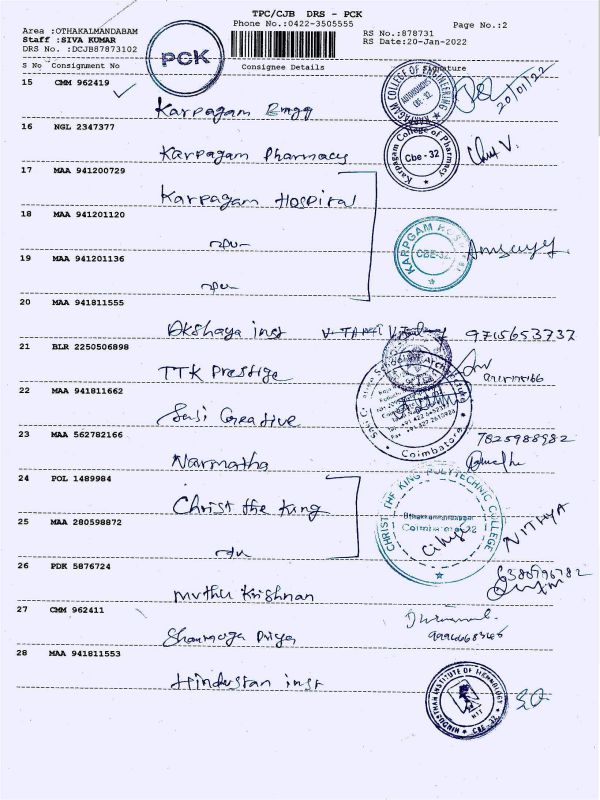 TPC/CJB DRS - PCK
Phone No.:0422-3505555
Page No.:2
Area :OTHAKALMANDABAM
Staff :SIVA KUMAR
DRS No. :DCJB87873102
RS No.:878731
RS Date:20-Jan-2022
PCK
S No Consignment No Consignee Details Signature
15 CMM 962419
Karpagam Engg
KARPAGAM COLLEGE OF ENGINEERING
AUTONOMOUS
CBE-32
20/01/22
16 NGL 2347377
Karpagam Pharmacy
Karpagam College of Pharmacy
Cbe - 32
17 MAA 941200729
Karpagam Hospital
18 MAA 941201120
KARPGAM HOSPITAL
CBE-32
19 MAA 941201136
20 MAA 941811555
Akshaya inst
9715653737
21 BLR 2250506898
TTK Prestige
22 MAA 941811662
Sasi Creative
Coimbatore
23 MAA 562782166
Narmatha
7825988982
24 POL 1489984
Christ the King
CHRIST THE KING POLYTECHNIC COLLEGE
Coimbatore
25 MAA 280598872
NITHYA
26 PDK 5876724
Muthu Krishnan
27 CMM 962411
Shanmuga Priya
28 MAA 941811553
Hindustan inst
HINDUSTHAN INSTITUTE OF TECHNOLOGY
HIT
CBE-32